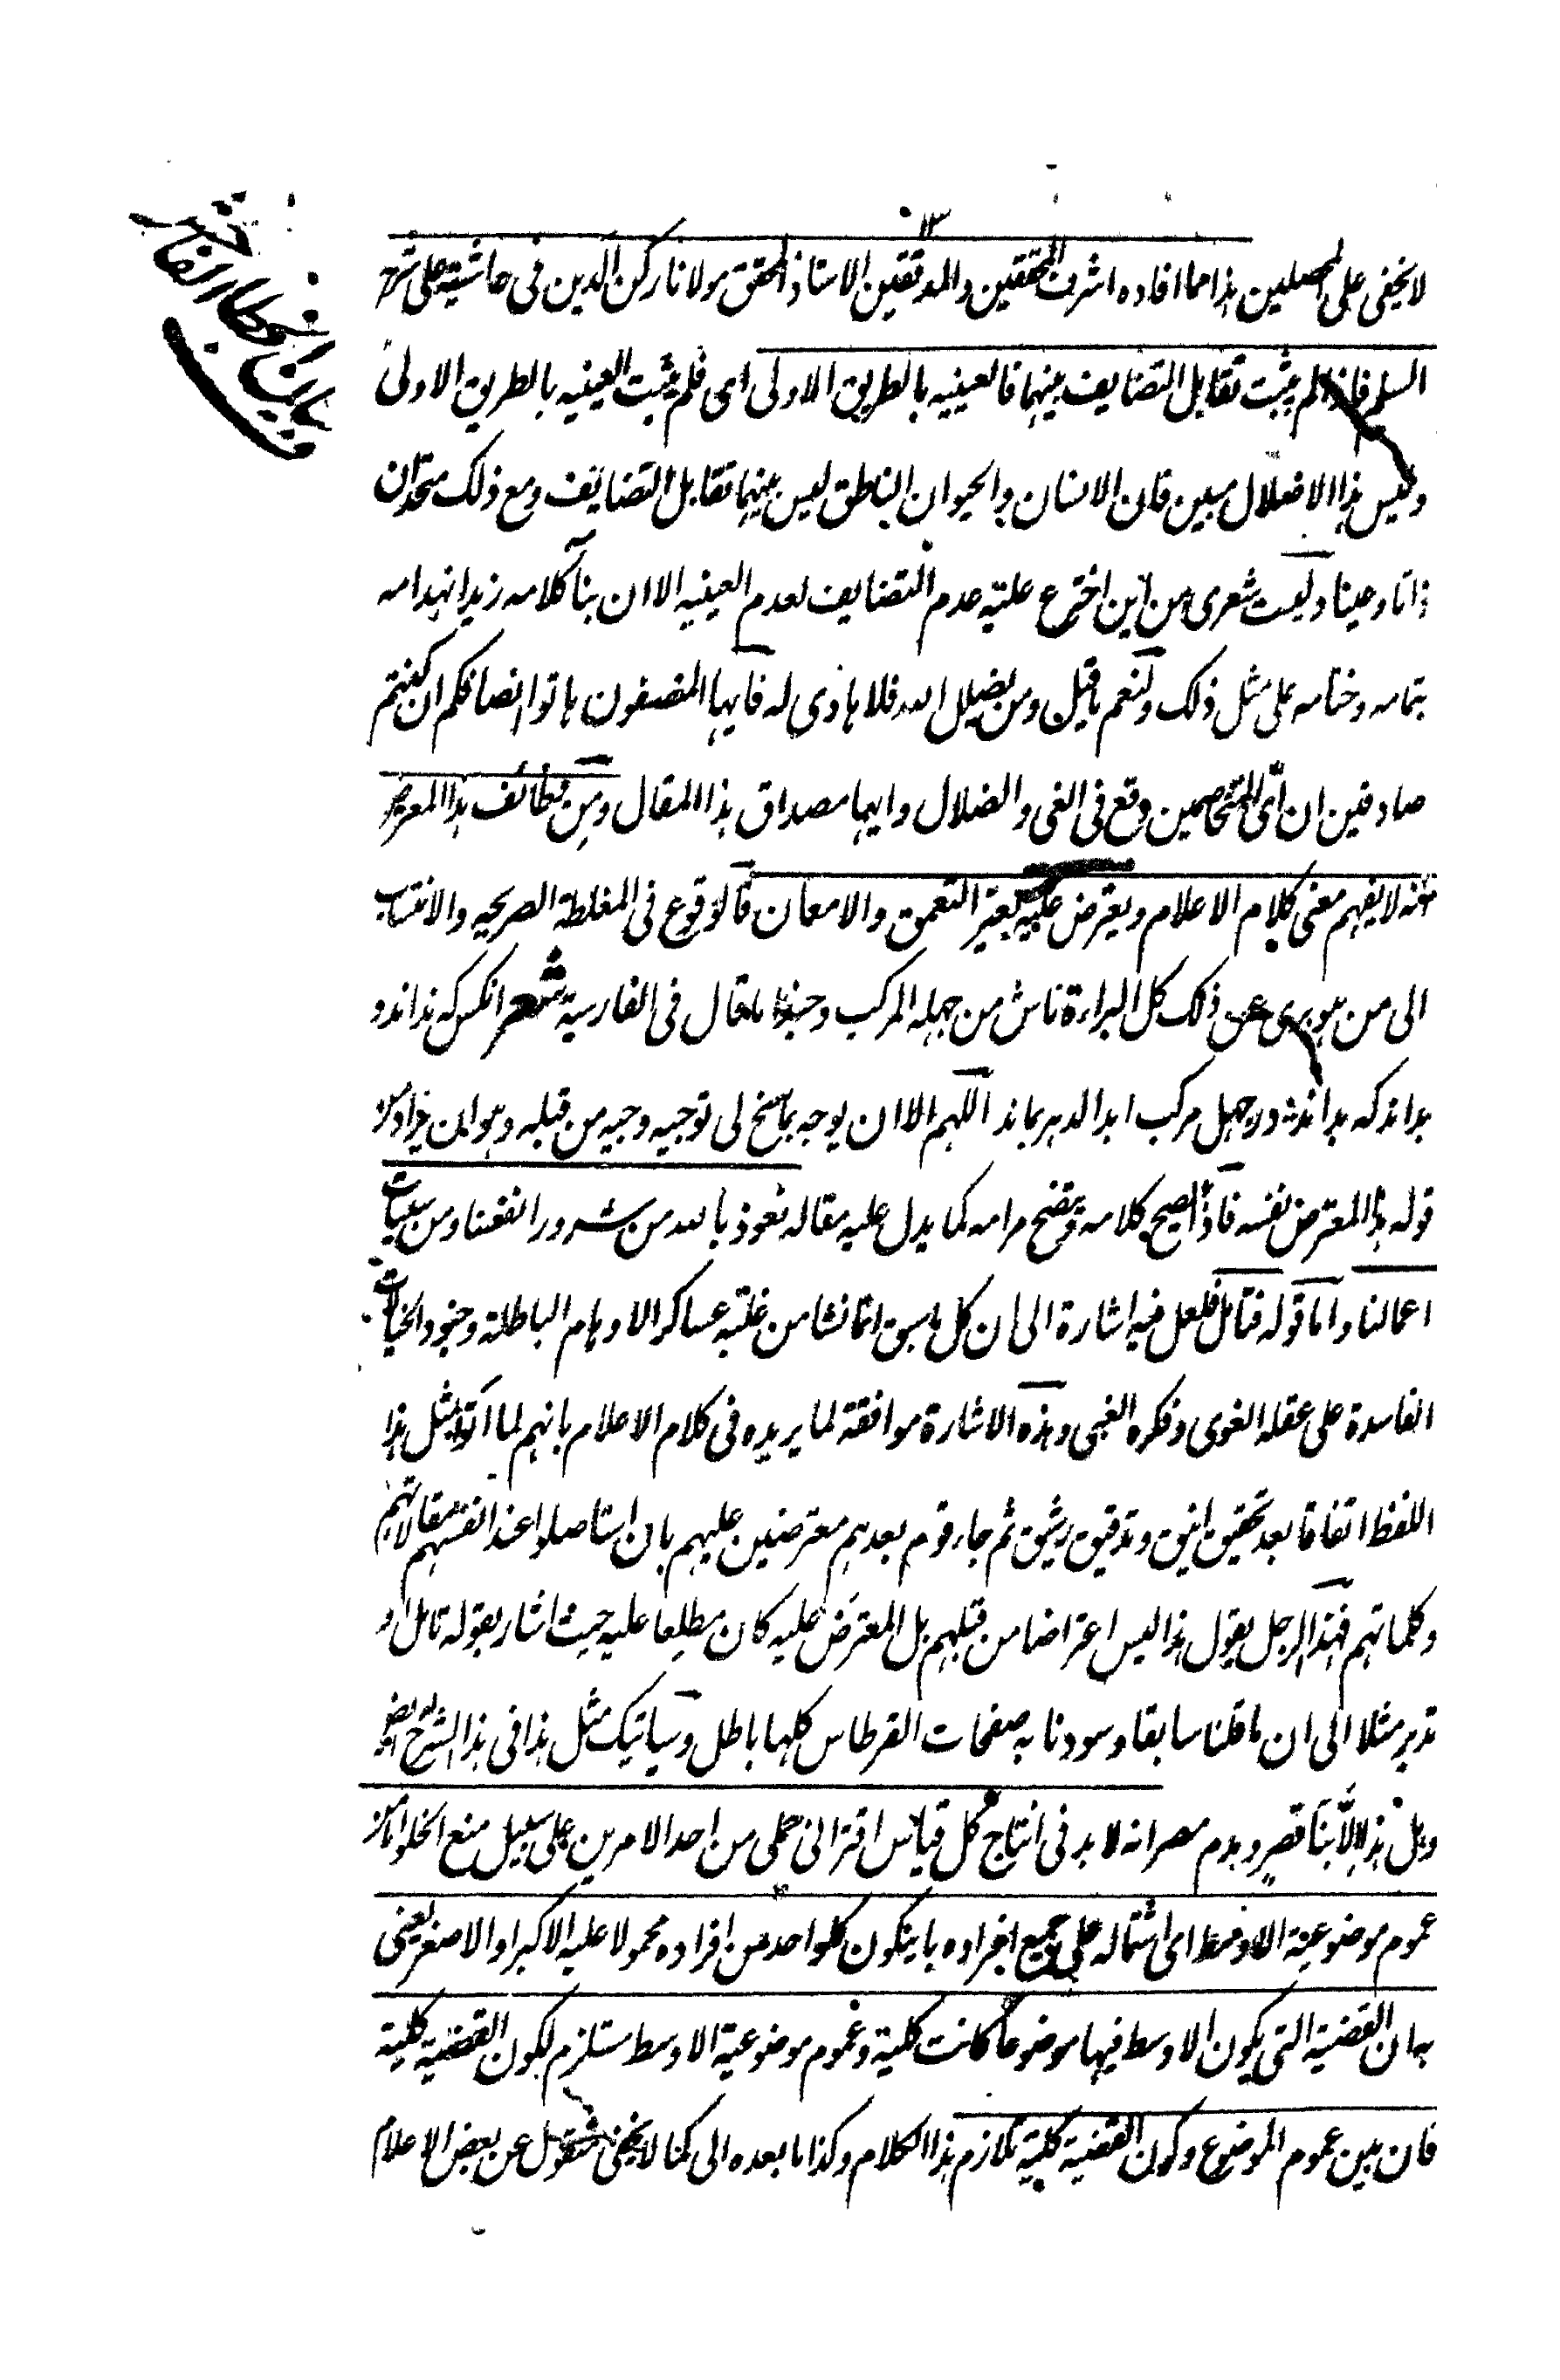 ١٣
لا يخفى على المحصلين هذا ما افاده اشرف المحققين والمدققين الاستاذ المحقق مولانا ركن الدين فى حاشيته على شرح
السلم فاذا لم يثبت تقابل التضايف بينهما فالعينيه بالطريق الاولى اى فلم يثبت العينيه بالطريق الاولى
وليس هذا الا ضلال مبين فان الانسان والحيوان الناطق ليس بينهما تقابل التضايف ومع ذلك متحدان
ذاتا وعينا وليت شعرى من اين اخترع علية عدم التضايف لعدم العينيه الا ان بناء كلامه زيد انهدامه
بتمامه وختامه على مثل ذلك ولنعم ما قيل ومن يضلل الله فلا هادى له فايها المنصفون هاتوا انصافكم ان كنتم
صادقين ان اى المتخاصمين وقع فى الغى والضلال وايهما مصداق هذا المقال ومن هذا المعترض
انه لا يفهم معنى كلام الاعلام ويعترض عليه بغير التعمق والامعان فالوقوع فى المغلطة الصريحه والانتساب
الى من هو برى عن ذلك كل البراءة ناش من جهله المركب وحبذا ما قال فى الفارسية شعر انكس كه نداند و
بداند كه بداند در جهل مركب ابد الدهر بماند اللهم الا ان يوجه بما سنح لى توجيه وجيه من قبله وهو ان
قوله هذا المعترض نفسه فاذا يصح كلامه ويتضح مرامه كما يدل عليه مقاله نعوذ بالله من شرور انفسنا ومن سيئات
اعمالنا واما قوله فتامل فلعل فيه اشارة الى ان كل ما سبق انما نشا من غلبة عساكر الاوهام الباطلة وجنود الخيالات
الفاسدة على عقله الغوى وفكره الغبى وهذه الاشارة موافقة لما يريده فى كلام الاعلام بانهم لما اتوا بمثل هذا
اللفظ اتفاقا بعد تحقيق انيق وتدقيق رشيق ثم جاء قوم بعدهم معترضين عليهم بان استاصلوا عند انفسهم مقالاتهم
وكلماتهم فهذا الرجل يقول هذا ليس اعتراضا من قبلهم بل المعترض عليه كان مطلعا عليه حيث اشار بقوله تامل او
تدبر مثلا الى ان ما قلنا سابقا وسودنا به صفحات القرطاس كلها باطل وسياتيك مثل هذا فى هذا الشرح ايضا
وهل هذا الا بناء قصر وهدم مصر انه لا بد فى انتاج كل قياس اقترانى حملى من احد الامرين على سبيل منع الخلو اما من
عموم موضوعية الاوسط اى اشتماله على جميع افراده بان يكون كلواحد من افراده محمولا عليه الاكبر او الاصغر يعنى
به ان القضية التى يكون الاوسط فيها موضوعا كانت كلية وعموم موضوعية الاوسط مستلزم لكون القضية كلية
فان بين عموم الموضوع وكون القضية كلية تلازم هذا الكلام وكذا ما بعده الى كما لا يخفى منقول عن بعض الاعلام